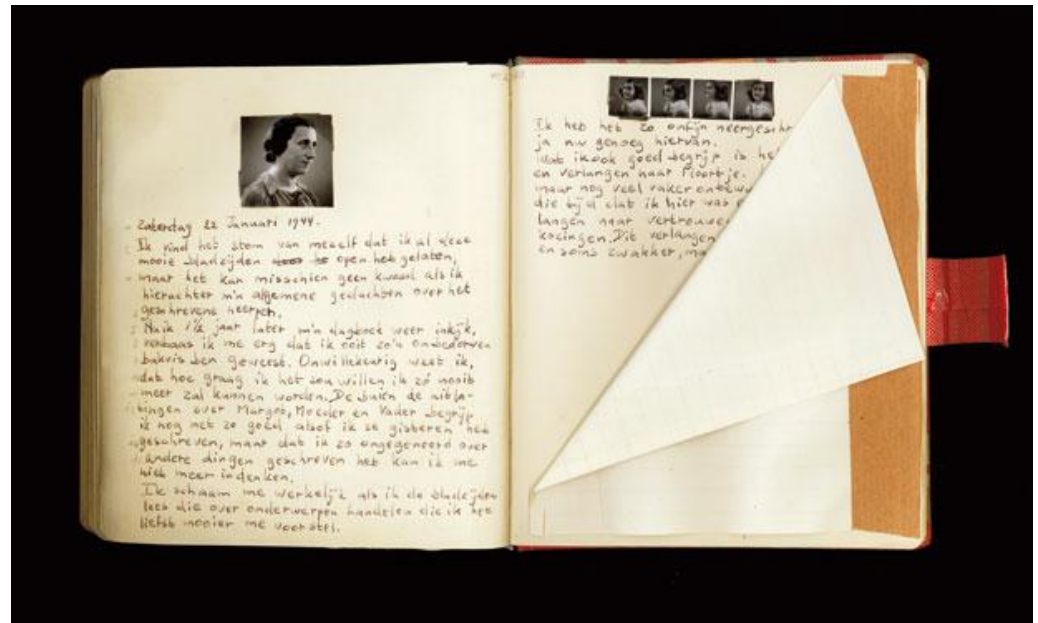 Zaterdag 22 Januari 1944.
Ik vind het stom van mezelf dat ik al deze
mooie bladzijden open heb gelaten,
maar het kan misschien geen kwaad als ik
hierachter m'n algemene gedachten over het
geschrevene neerpen.
Nu ik 1½ jaar later m'n dagboek weer inkijk,
verbaas ik me erg dat ik ooit zo'n onbedorven
bakvis ben geweest. Onwillekeurig weet ik,
dat hoe graag ik het zou willen ik zó nooit
meer zal kunnen worden. De buien de uitla-
tingen over Margot, Moeder en Vader begrijp
ik nog net zo goed alsof ik ze gisteren heb
geschreven, maar dat ik zo ongegeneerd over
andere dingen geschreven heb kan ik me
niet meer indenken.
Ik schaam me werkelijk als ik de bladzijden
lees die over onderwerpen handelen die ik het
liefst mooier me voorstel.
Ik heb het zo onfijn neergeschr
ja nu genoeg hiervan.
Wat ik ook goed begrijp is he
en verlangen naar Moortje.
maar nog veel vaker onbewu
die tijd dat ik hier was
langen naar vertrouwe
kozingen. Dit verlangen
en soms zwakker, ma